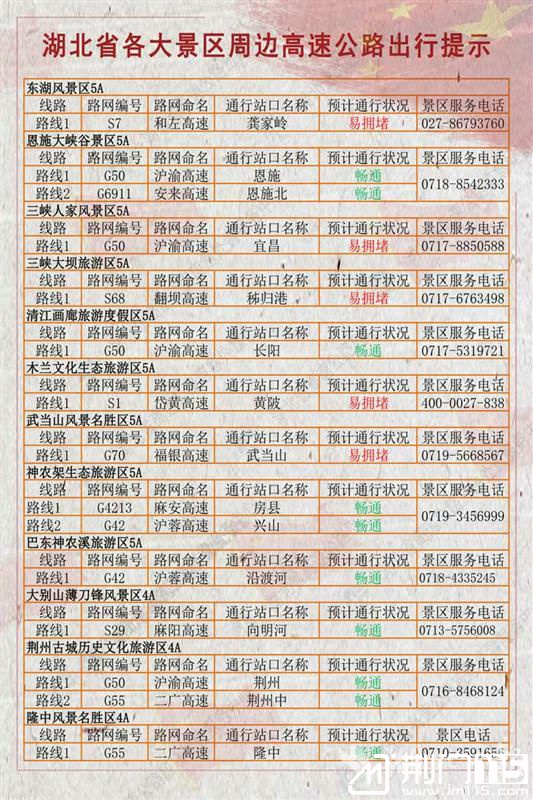 湖北省各大景区周边高速公路出行提示
东湖风景区5A
线路 路网编号 路网命名 通行站口名称 预计通行状况 景区服务电话
路线1 S7 和左高速 龚家岭 易拥堵 027-86793760
恩施大峡谷景区5A
线路 路网编号 路网命名 通行站口名称 预计通行状况 景区服务电话
路线1 G50 沪渝高速 恩施 畅通 0718-8542333
路线2 G6911 安来高速 恩施北 畅通
三峡人家风景区5A
线路 路网编号 路网命名 通行站口名称 预计通行状况 景区服务电话
路线1 G50 沪渝高速 宜昌 易拥堵 0717-8850588
三峡大坝旅游区5A
线路 路网编号 路网命名 通行站口名称 预计通行状况 景区服务电话
路线1 S68 翻坝高速 秭归港 易拥堵 0717-6763498
清江画廊旅游度假区5A
线路 路网编号 路网命名 通行站口名称 预计通行状况 景区服务电话
路线1 G50 沪渝高速 长阳 畅通 0717-5319721
木兰文化生态旅游区5A
线路 路网编号 路网命名 通行站口名称 预计通行状况 景区服务电话
路线1 S1 岱黄高速 黄陂 易拥堵 400-0027-838
武当山风景名胜区5A
线路 路网编号 路网命名 通行站口名称 预计通行状况 景区服务电话
路线1 G70 福银高速 武当山 易拥堵 0719-5668567
神农架生态旅游区5A
线路 路网编号 路网命名 通行站口名称 预计通行状况 景区服务电话
路线1 G4213 麻安高速 房县 畅通 0719-3456999
路线2 G42 沪蓉高速 兴山 畅通
巴东神农溪旅游区5A
线路 路网编号 路网命名 通行站口名称 预计通行状况 景区服务电话
路线1 G42 沪蓉高速 沿渡河 畅通 0718-4335245
大别山薄刀锋风景区4A
线路 路网编号 路网命名 通行站口名称 预计通行状况 景区服务电话
路线1 S29 麻阳高速 向明河 畅通 0713-5756008
荆州古城历史文化旅游区4A
线路 路网编号 路网命名 通行站口名称 预计通行状况 景区服务电话
路线1 G50 沪渝高速 荆州 畅通 0716-8468124
路线2 G55 二广高速 荆州中 畅通
隆中风景名胜区4A
线路 路网编号 路网命名 通行站口名称 预计通行状况 景区服务电话
路线1 G55 二广高速 隆中 畅通 0710-3591656
荆门115
www.jm115.com